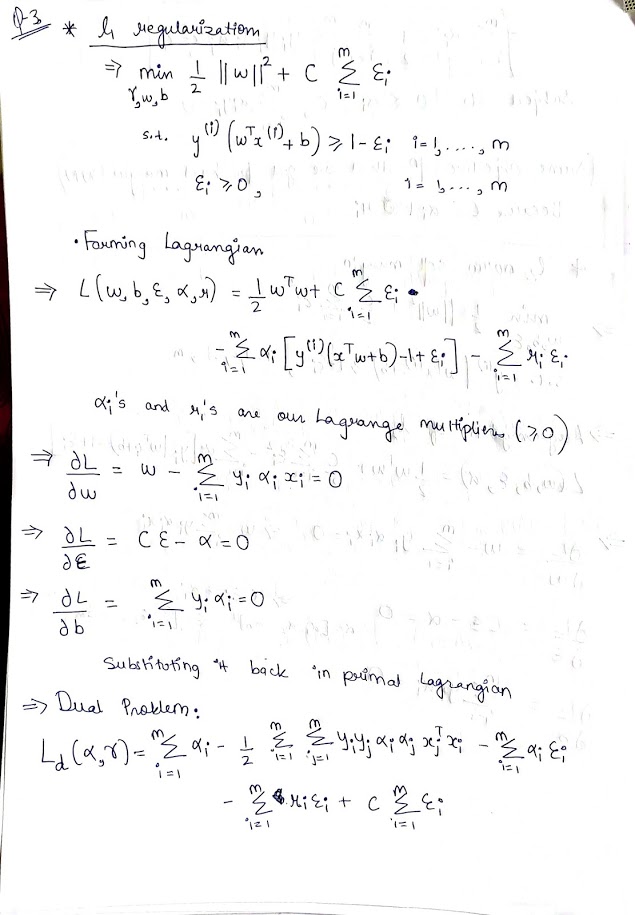 Q-3 * l1 regularization
⇒ min_{γ,w,b} 1/2 ||w||² + C Σ_{i=1}^{m} ε_i
s.t. y^(i) (w^T x^(i) + b) ≥ 1 - ε_i i=1, ...., m
ε_i ≥ 0, i = 1, ..., m
• Forming Lagrangian
⇒ L(w, b, ε, α, r) = 1/2 w^T w + C Σ_{i=1}^{m} ε_i
- Σ_{i=1}^{m} α_i [y^(i) (x^T w + b) - 1 + ε_i] - Σ_{i=1}^{m} r_i ε_i
α_i's and r_i's are our Lagrange multipliers (≥ 0)
⇒ ∂L/∂w = w - Σ_{i=1}^{m} y_i α_i x_i = 0
⇒ ∂L/∂ε = C ε - α = 0
⇒ ∂L/∂b = Σ_{i=1}^{m} y_i α_i = 0
Substituting it back in primal Lagrangian
⇒ Dual Problem:
L_d (α, γ) = Σ_{i=1}^{m} α_i - 1/2 Σ_{i=1}^{m} Σ_{j=1}^{m} y_i y_j α_i α_j x_j^T x_i - Σ_{i=1}^{m} α_i ε_i
- Σ_{i=1}^{m} r_i ε_i + C Σ_{i=1}^{m} ε_i